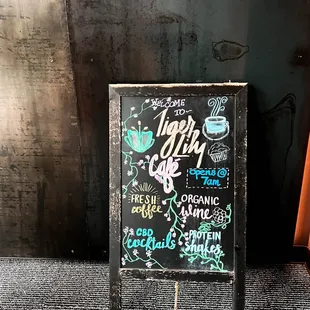 WELCOME
TO
Tiger
Lily
Café
OPENS @
7am
FRESH
coffee
ORGANIC
wine
CBD
cocktails
PROTEIN
shakes